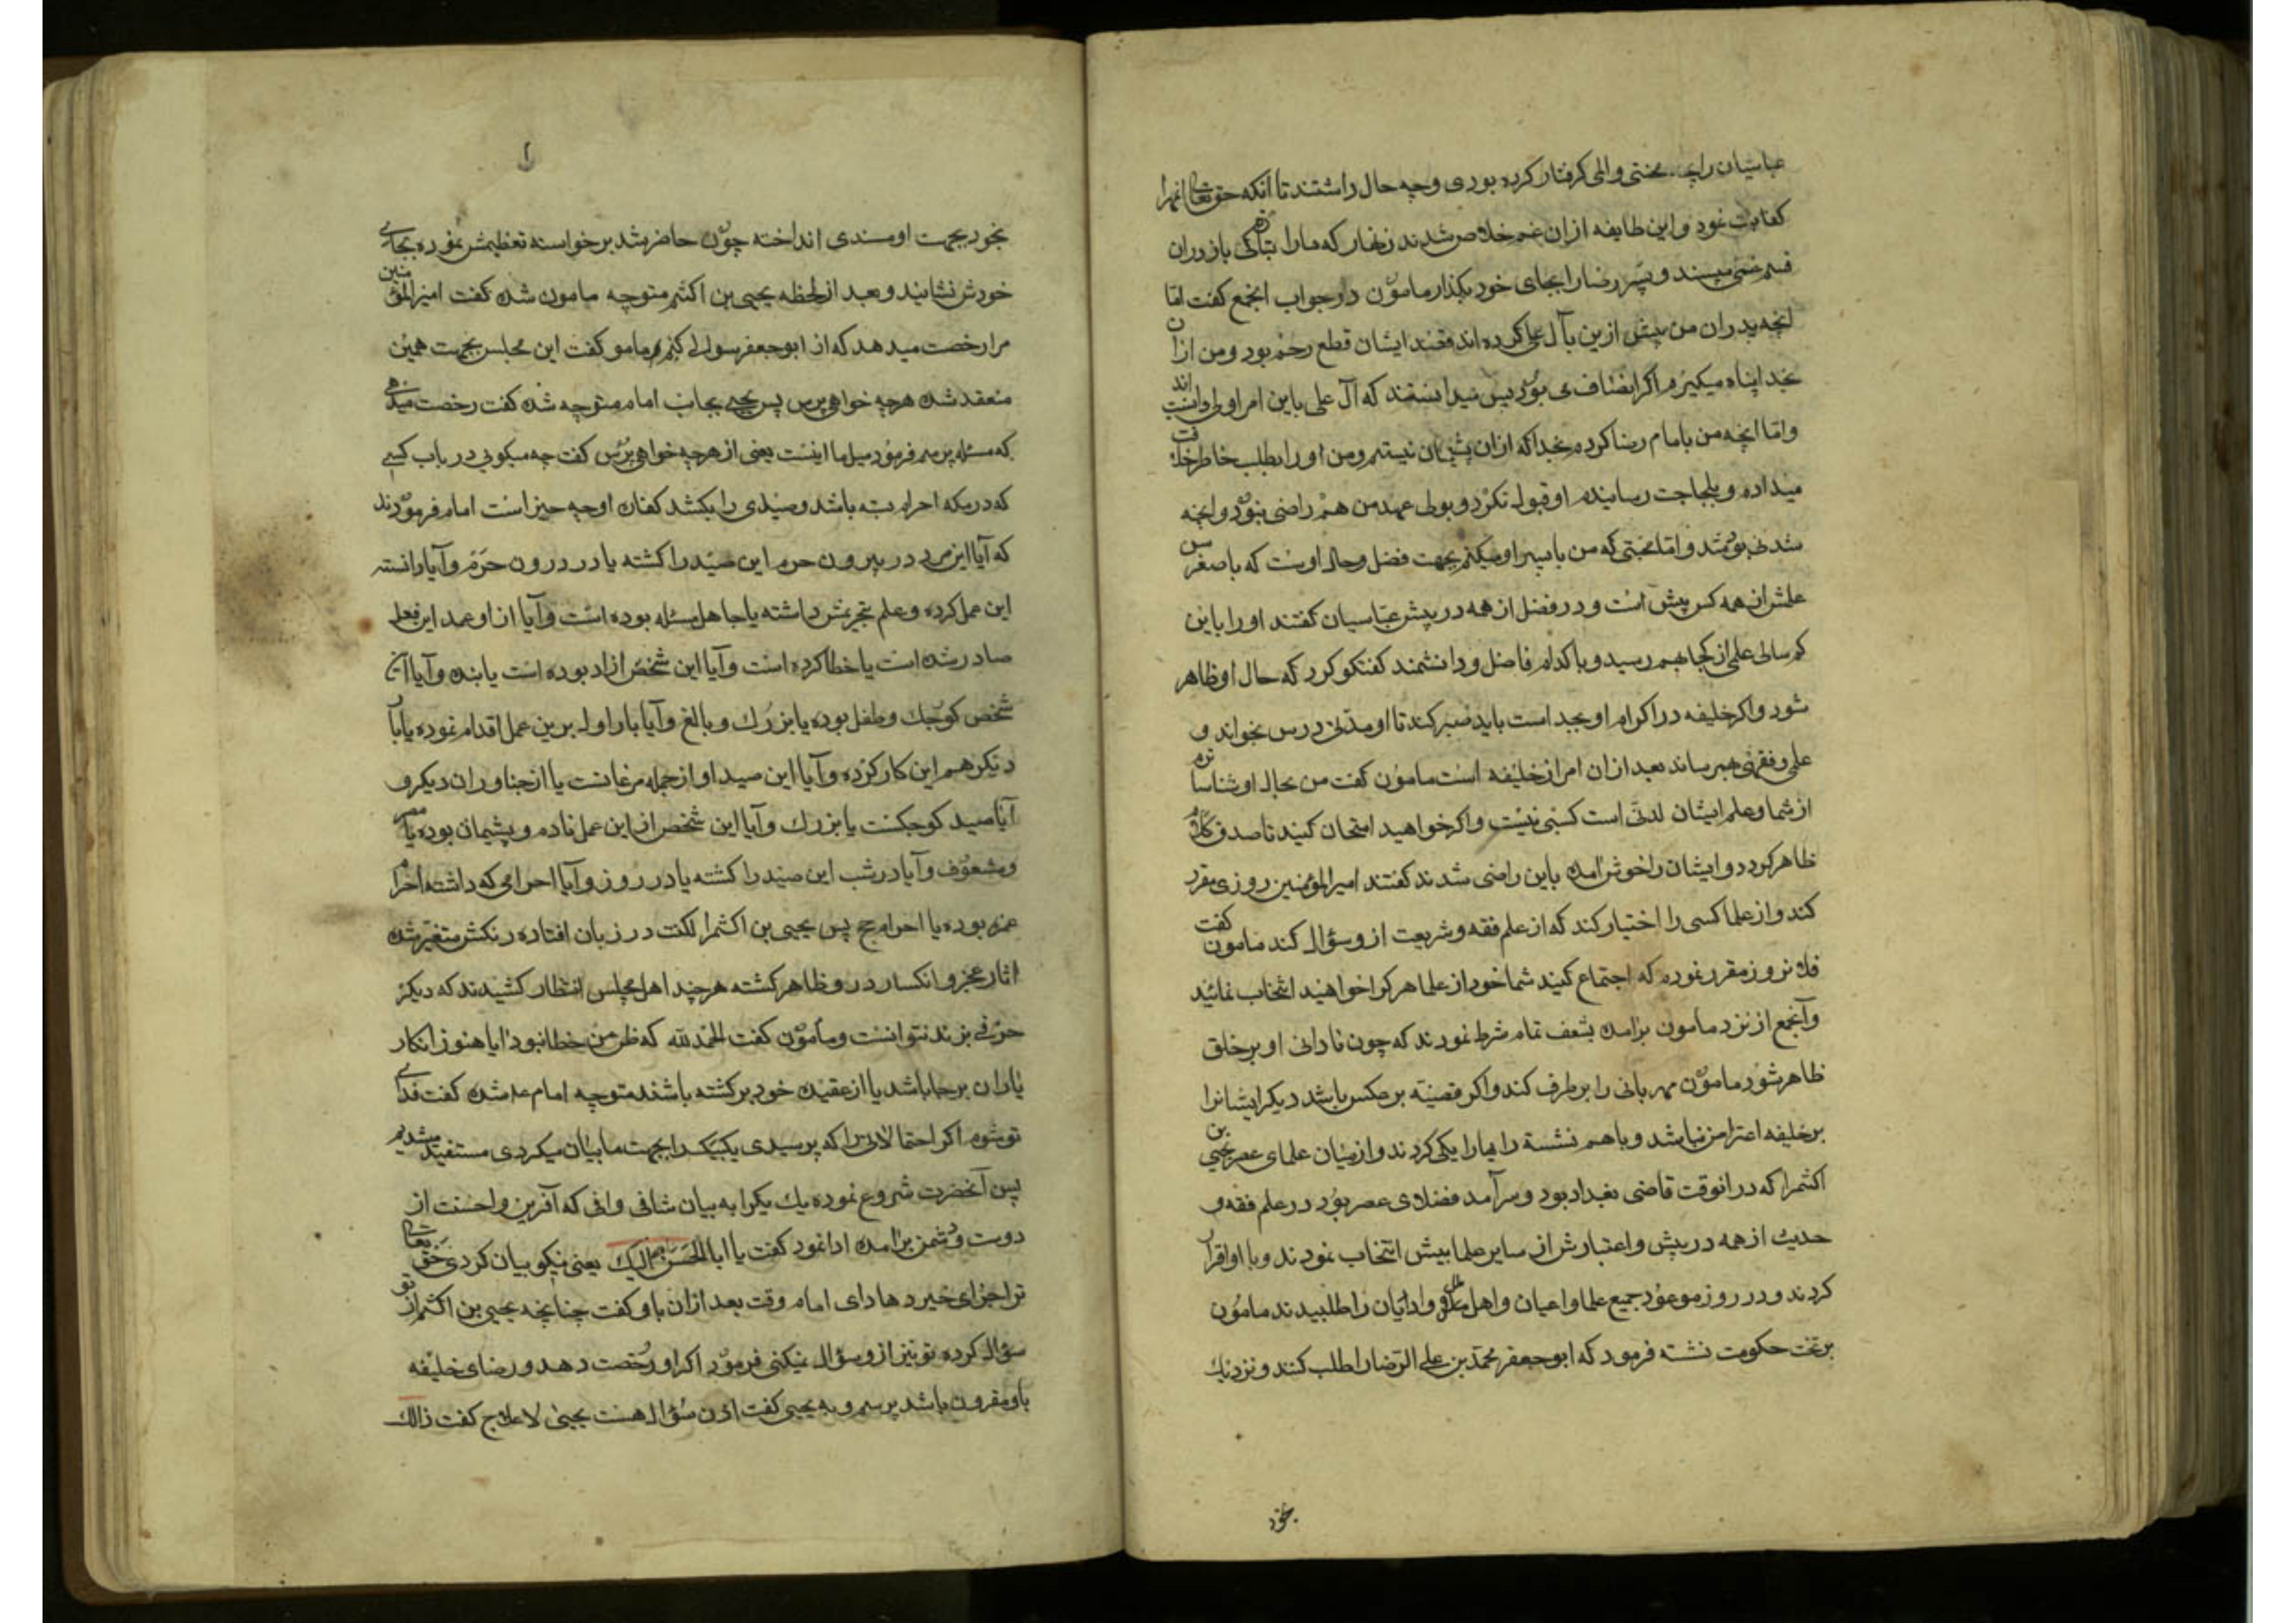 عباسیان را بچه محنتی والمی کرفتار کرده بودی وچه حال داشتند تا آنکه حق تعالی انهمرا
کفایت نمود واین طایفه ازان غم خلاص شدند زنهار که مارا تبازکی بازدران
قسم غمی مپسند وپسر رضا را بجای خود بکذار مامون در جواب انجمع کفت امّا
انچه پدران من پیش ازین بآل علی کرده اند قصد ایشان قطع رحم بود ومن ازان
بخدا پناه میکیرم اکر انصاف می بود پس میدانستند که آل علی باین امر اولی اند
وامّا انچه من با امام رضا کرده بخدا که ازان پشیمان نیستم ومن اورا بطلب خاطر خلافت
میداده وبلجاجت رسانیدم او قبول نکرد وبولی عهد من هم راضی نبود وانچه
شدنی بود شد وامّا محبتی که من با پسر او میکنم بجهت فضل وحال اوست که با صغر سن
علمش از همه کس پیش است ودر فضل از همه در پیش عبّاسیان کفتند اورا باین
کم سالی علم از کجا بهم رسید وبا کدام فاضل ودانشمند کفتکو کرد که حال او ظاهر
شود واکر خلیفه در اکرام او بجد است باید صبر کند تا او مدّتی درس بخواند و
علم وفقهی بهم رساند بعد ازان امر از خلیفه است مامون کفت من بحال او شناساترم
از شما وعلم ایشان لدنّی است کسبی نیست واکر خواهید امتحان کنید تا صدق کلام
ظاهر کردد وایشان را خوش آمده باین راضی شدند کفتند امیرالمؤمنین روزی مقرر
کند واز علما کسی را اختیار کند که از علم فقه وشریعت از وسؤال کند مامون کفت
فلان روز مقرر نموده که اجتماع کنید شما خود از علما هرکرا خواهید انتخاب نمائید
وآنجمع از نزد مامون برامده بشعف تمام شرط نمودند که چون نادانی او بر خلق
ظاهر شود مامون مهربانی را بر طرف کند واکر قضیّه بر عکس باشد دیکر ایشانرا
بر خلیفه اعتراض نباشد وباهم نشسته رایها را یکی کردند واز میان علمای عصر یحیی بن
اکثم را که در انوقت قاضی بغداد بود وسرآمد فضلای عصر بود در علم فقه و
حدیث از همه در پیش واعتبارش از سایر علما بیش انتخاب نمودند وبا او اقرار
کردند ودر روز موعود جمیع علما واعیان واهل ملل وادیان را طلبیدند مامون
بر تخت حکومت نشسته فرمود که ابوجعفر محمّد بن علی الرّضا را طلب کنند ونزدیک
بخود
بخود بجهت او مسندی انداخته چون حاضر شد برخواسته تعظیمش نموده بجای
خودش نشانید وبعد از لحظه یحیی بن اکثم متوجه مامون شده کفت امیرالمؤمنین
مرا رخصت میدهد که از ابوجعفر سوالی کنم مامون کفت این مجلس بجهت همین
منعقد شده هرچه خواهی پرس پس یحیی بجانب امام متوجه شده کفت رخصت میدهی
که مسئله پرسم فرمود میل ما اینست یعنی از هرچه خواهی پرس کفت چه میکوئی در باب کسی
که در مکه احرام بسته باشد وصیدی را بکشد کفاره او چه چیز است امام فرمودند
که آیا این مرد در بیرون حرم این صید را کشته یا در درون حرم وآیا دانسته
این عمل کرده وعلم بتحریمش داشته یا جاهل مسئله بوده است وآیا از او عمد این فعل
صادر شده است یا خطا کرده است وآیا این شخص ازاد بوده است یا بنده وآیا آن
شخص کوچک وطفل بوده یا بزرک وبالغ وآیا بار اول برین عمل اقدام نموده یا بار
دیکر هم این کار کرده وآیا این صید او از جمله مرغانست یا از جناوران دیکر و
آیا صید کوچکست یا بزرک وآیا این شخص از این عمل نادم وپشیمان بوده یا مصر
ومشعوف وآیا در شب این صید را کشته یا در روز وآیا احرامی که داشته احرام
عمره بوده یا احرام حج پس یحیی بن اکثم را لکنت در زبان افتاده رنکش متغیّر شده
اثار عجز وانکسار در و ظاهر کشته هرچند اهل مجلس انتظار کشیدند که دیکر
حرفی بزند نتوانست ومامون کفت الحمدلله که ظن من خطا نبود ایا هنوز انکار
یاران برجا باشد یا از عقیده خود برکشته باشند متوجه امام ع شده کفت فدای
تو شوم اکر احتمالاتی را که پرسیدی یک یک را بجهت ما بیان میکردی مستفید میشدیم
پس آنحضرت شروع نموده یک یک را به بیان شافی وافی که آفرین واحسنت از
دوست ودشمن برامده ادا نمود کفت یا ابا الحسن الیک یعنی نیکو بیان کردی حق تعالی
ترا جزای خیر دهاد ای امام وقت بعد ازان باو کفت چنانچه یحیی بن اکثم از تو
سؤال کرده تو نیز از وسؤال میکنی فرمود اکر او رخصت دهد ورضای خلیفه
باو مقرون باشد پرسم وبه یحیی کفت اذن سؤال هست یحیی لاعلاج کفت ذالک